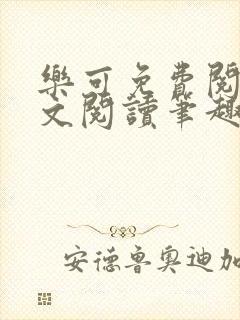 樂可免費閱
文閱讀筆趣
安德魯奧迪加